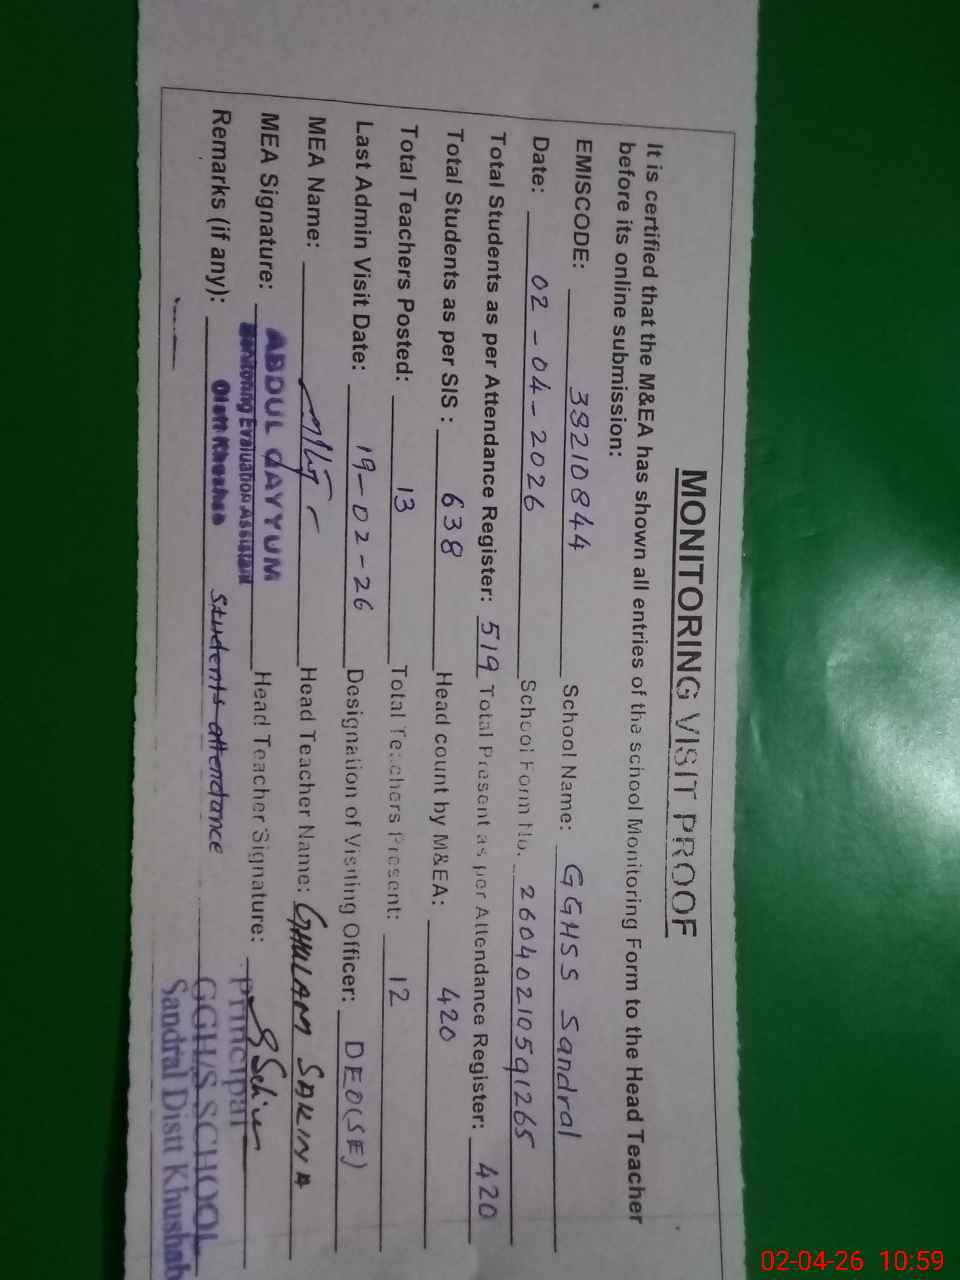 MONITORING VISIT PROOF
It is certified that the M&EA has shown all entries of the school Monitoring Form to the Head Teacher
before its online submission:
EMISCODE: 38210844 School Name: GGHSS Sandral
Date: 02-04-2026 School Form No. 260402105912​65
Total Students as per Attendance Register: 519 Total Present as per Attendance Register: 420
Total Students as per SIS: 638 Head count by M&EA: 420
Total Teachers Posted: 13 Total Teachers Present: 12
Last Admin Visit Date: 19-02-26 Designation of Visiting Officer: DEO(SE)
MEA Name: Head Teacher Name: GHULAM SAKINA
MEA Signature: ABDUL QAYYUM Head Teacher Signature:
Monitoring Evaluation Assistant Principal
Remarks (if any): Distt Khushab Students attendance GGH/S SCHOOL
Sandral Distt Khushab
02-04-26 10:59